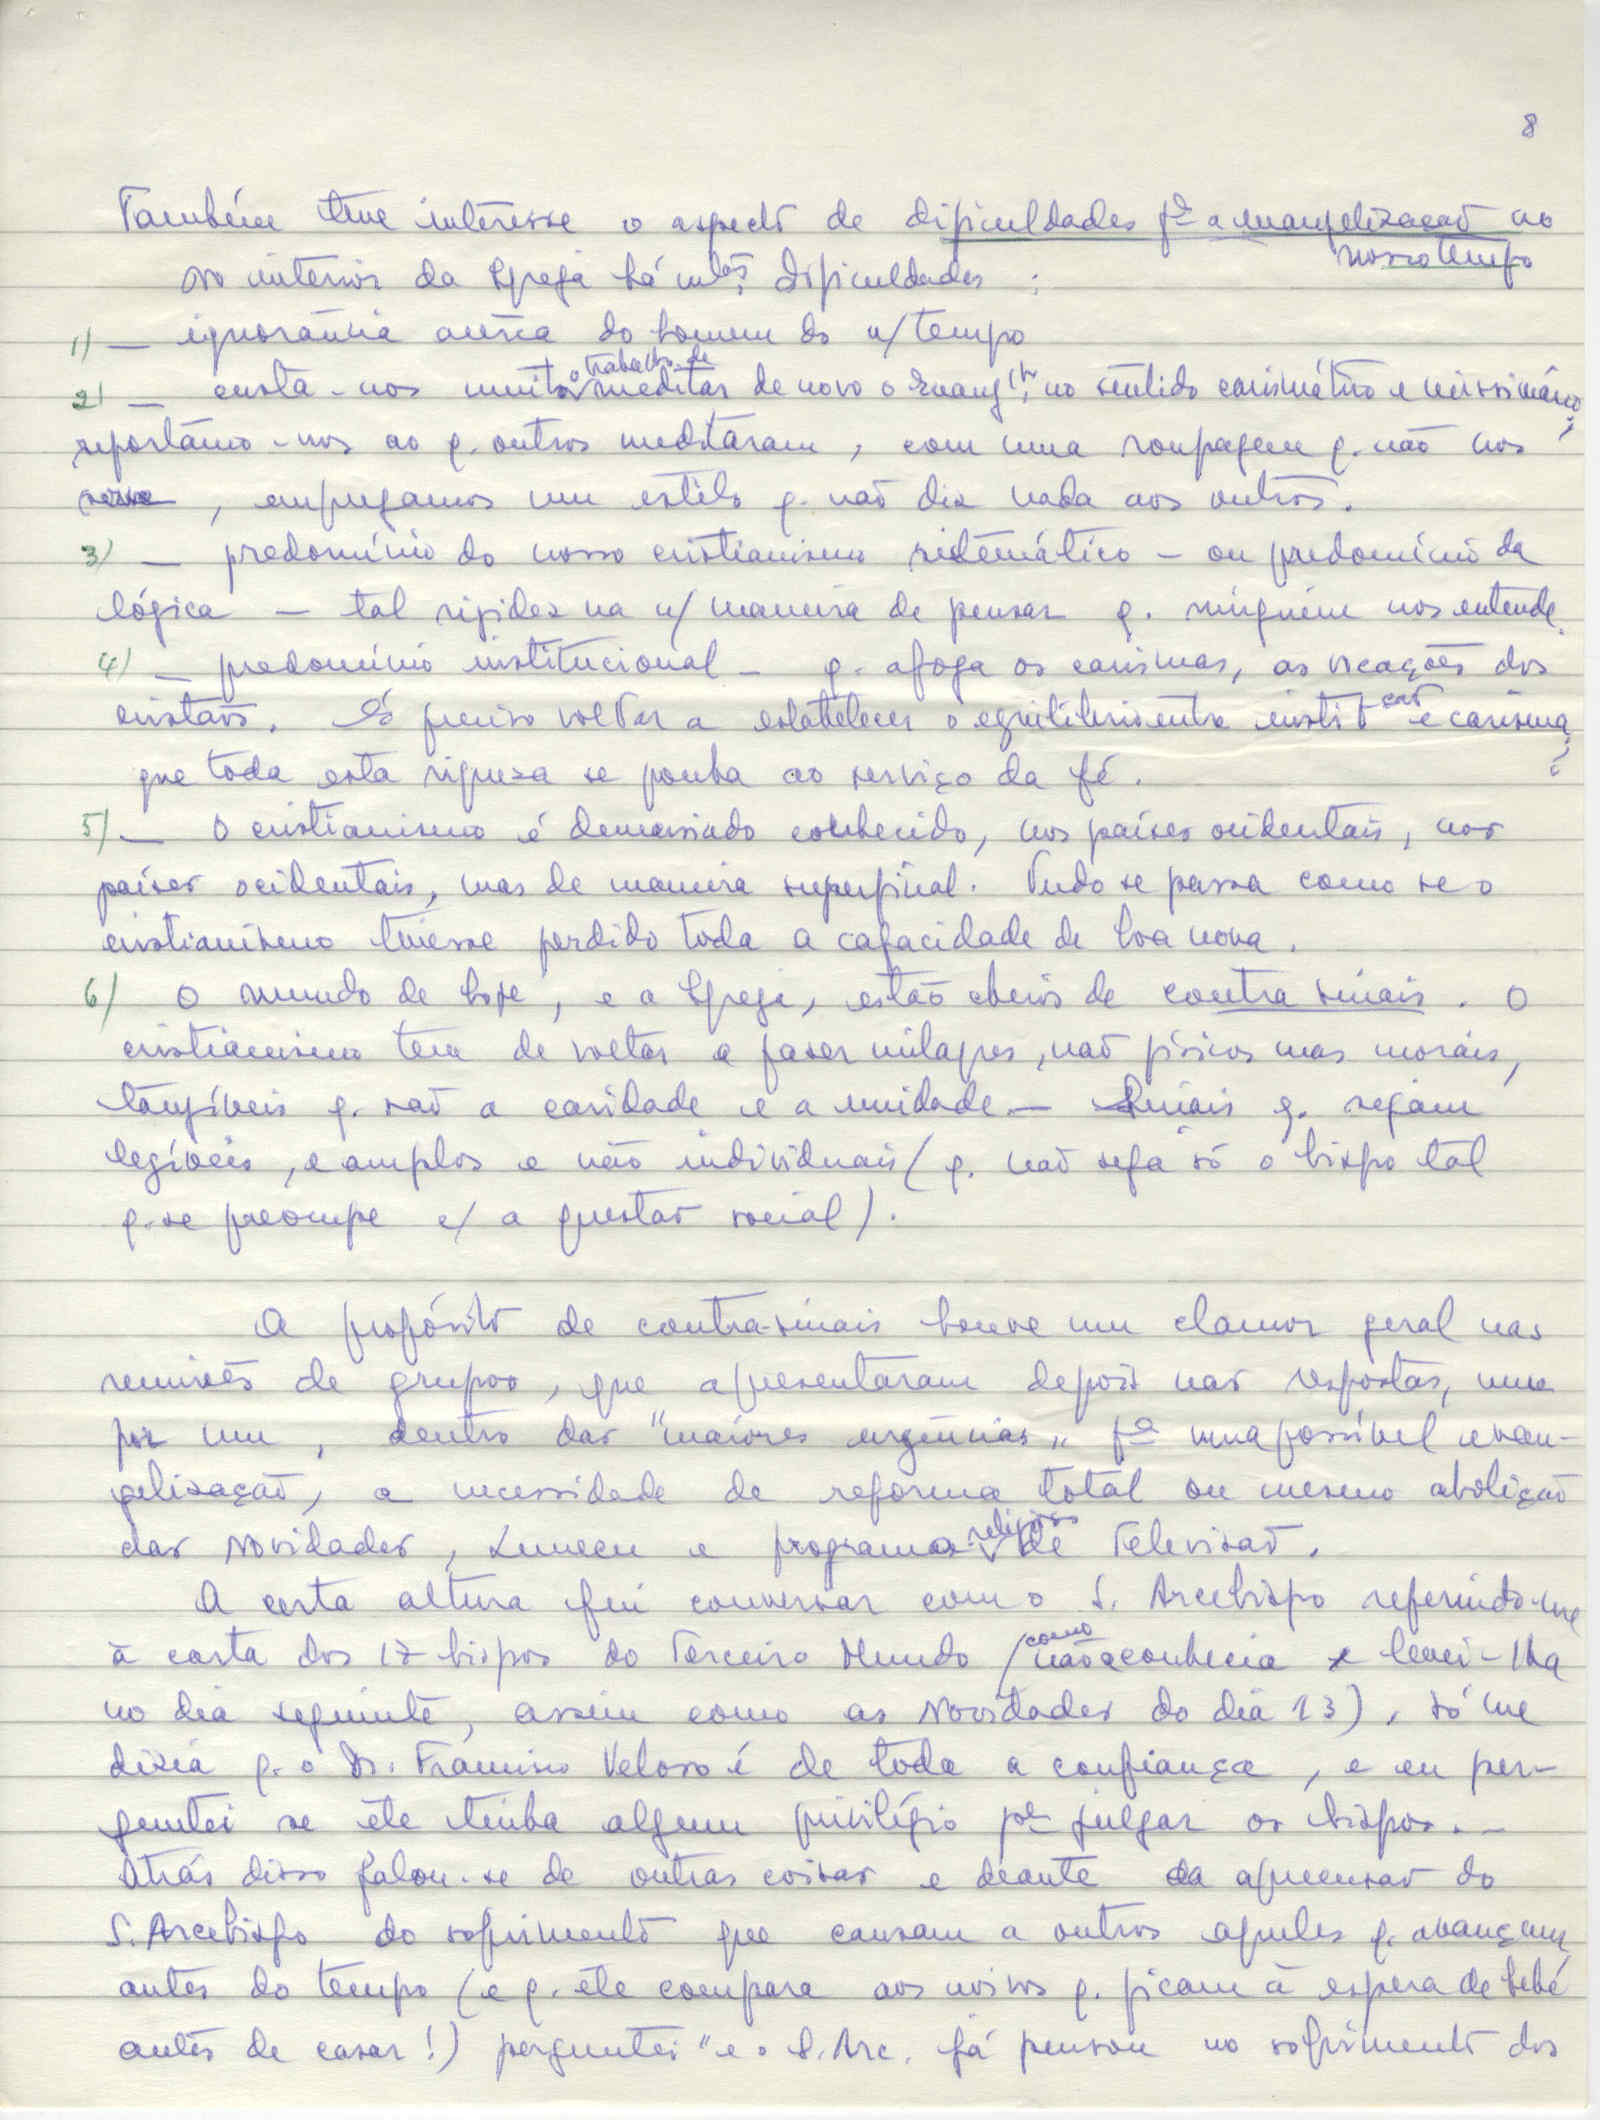 8
Também teve interesse o aspecto de dificuldades pª a evangelização no
nosso tempo
No interior da Igreja há mtas dificuldades :
1) — ignorância acerca do homem do n/ tempo
2) — custa-nos muito o trabalho de meditar de novo o Evangelho, no sentido carismático e missionário;
reportâmo-nos ao q. outros meditaram, com uma roupagem q. não nos
serve, empregamos um estilo q. não diz nada aos outros.
3) — predomínio do nosso cristianismo sistemático – ou predomínio da
lógica – tal rigidez na n/ maneira de pensar q. ninguém nos entende.
4) — predomínio institucional – q. afoga os carismas, as vocações dos
cristãos. É preciso voltar a estabelecer o equilíbrio entre institção e carisma;
que toda esta riqueza se ponha ao serviço da fé.
5) — O cristianismo é demasiado conhecido, nos países ocidentais, nos
países ocidentais, mas de maneira superficial. Tudo se passa como se o
cristianismo tivesse perdido toda a capacidade de boa nova.
6) O mundo de hoje, e a Igreja, estão cheios de contra sinais. O
cristianismo tem de voltar a fazer milagres, não físicos mas morais,
tangíveis q. são a caridade e a unidade — Sinais q. sejam
legíveis, e amplos e não individuais (q. não seja só o bispo tal
q. se preocupe c/ a questão social).
A propósito de contra-sinais houve um clamor geral nas
reuniões de grupos, que apresentaram depois nas respostas, um
por um, dentro das "maiores urgências" pª uma possível evan-
gelização, a necessidade de reforma total ou mesmo abolição
das Novidades, Lumen e programas religiosos de Televisão.
A certa altura fui conversar com o S. Arcebispo referindo-me
à carta dos 17 bispos do Terceiro Mundo (como não a conhecia e levei-lha
no dia seguinte, assim como as Novidades do dia 13), só me
dizia q. o Dr. Francisco Veloso é de toda a confiança, e eu per-
guntei se êle tinha algum privilégio pª julgar os bispos...
Atrás disso falou-se de outras coisas e deante da apreensão do
S. Arcebispo do sofrimento que causam a outros aqueles q. avançam
antes do tempo (e q. êle compara aos noivos q. ficam à espera de bebé
antes de casar!) perguntei "e o S. Arc. já pensou no sofrimento dos